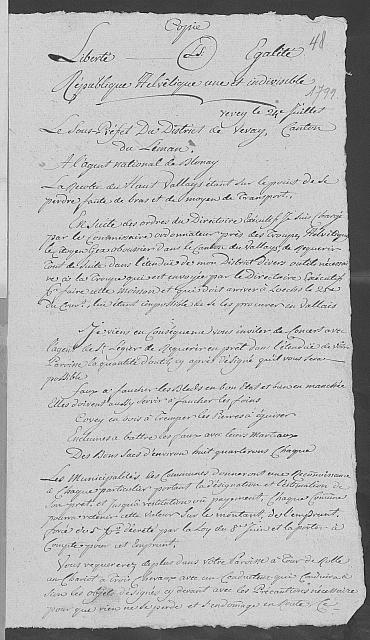 Copie
48
Liberté Egalité
République Helvétique une et indivisible
1799
Vevey le 24e Juillet
Le Sous-Préfet Du District de Vevay, Canton
du Léman.
A l'agent national de Blonay
La Recolte du Haut Vallays étant sur le point de se
perdre faute de bras et de moyen de Transport.
En Suite des ordres du Directoire Exécutif Je suis chargé
par le Commissaire ordonnateur près des Troupes Helvétiques
le Citoyen dans le Canton du Vallays de Requerir
tout de Suite dans l'étendue de mon District divers outils nécessaires
à la Troupe qui est envoyée par le Directoire Exécutif
pr faire cette Moisson et qui doit arriver à Loeche le 25e
du Court, lui étant impossible de se les procurer en Vallais
Je viens en Conséquence vous inviter de Concert avec
l'agent de St Légier de Requerir en prêt dans l'étendue de votre
Paroisse la quantité d'outils cy après désigné qu'il vous sera
possible
faux à faucher les Bleds en bon état et bien en manchée
Elles doivent aussy servir à faucher les foins
Covey en bois à Tremper les Pierres à éguiser
Enclumes à battre les faux avec leurs Marteaux
Des Bons Sacs d'environ huit quarterons Chaque
Les Municipalités des Communes donneront une Reconnaissance
à Chaque particulier portant la désignation et l'estimation de
son prêt, et jusqu'à restitution ou payement, Chaque Commune
pourra retenir cette Valeur sur le montant de l'emprunt
forcé de 5 décrété par la Loy du 8e Juin et la porter à
Compte pour cet Emprunt.
Vous requererez de plus dans votre Paroisse à Tour de Rolle
un Chariot à Trois Chevaux avec un Conducteur qui Conduira
sur les objets désignés cy devant avec les Précautions nécessaires
pour que rien ne se perde et s'endomage en Route, Ce